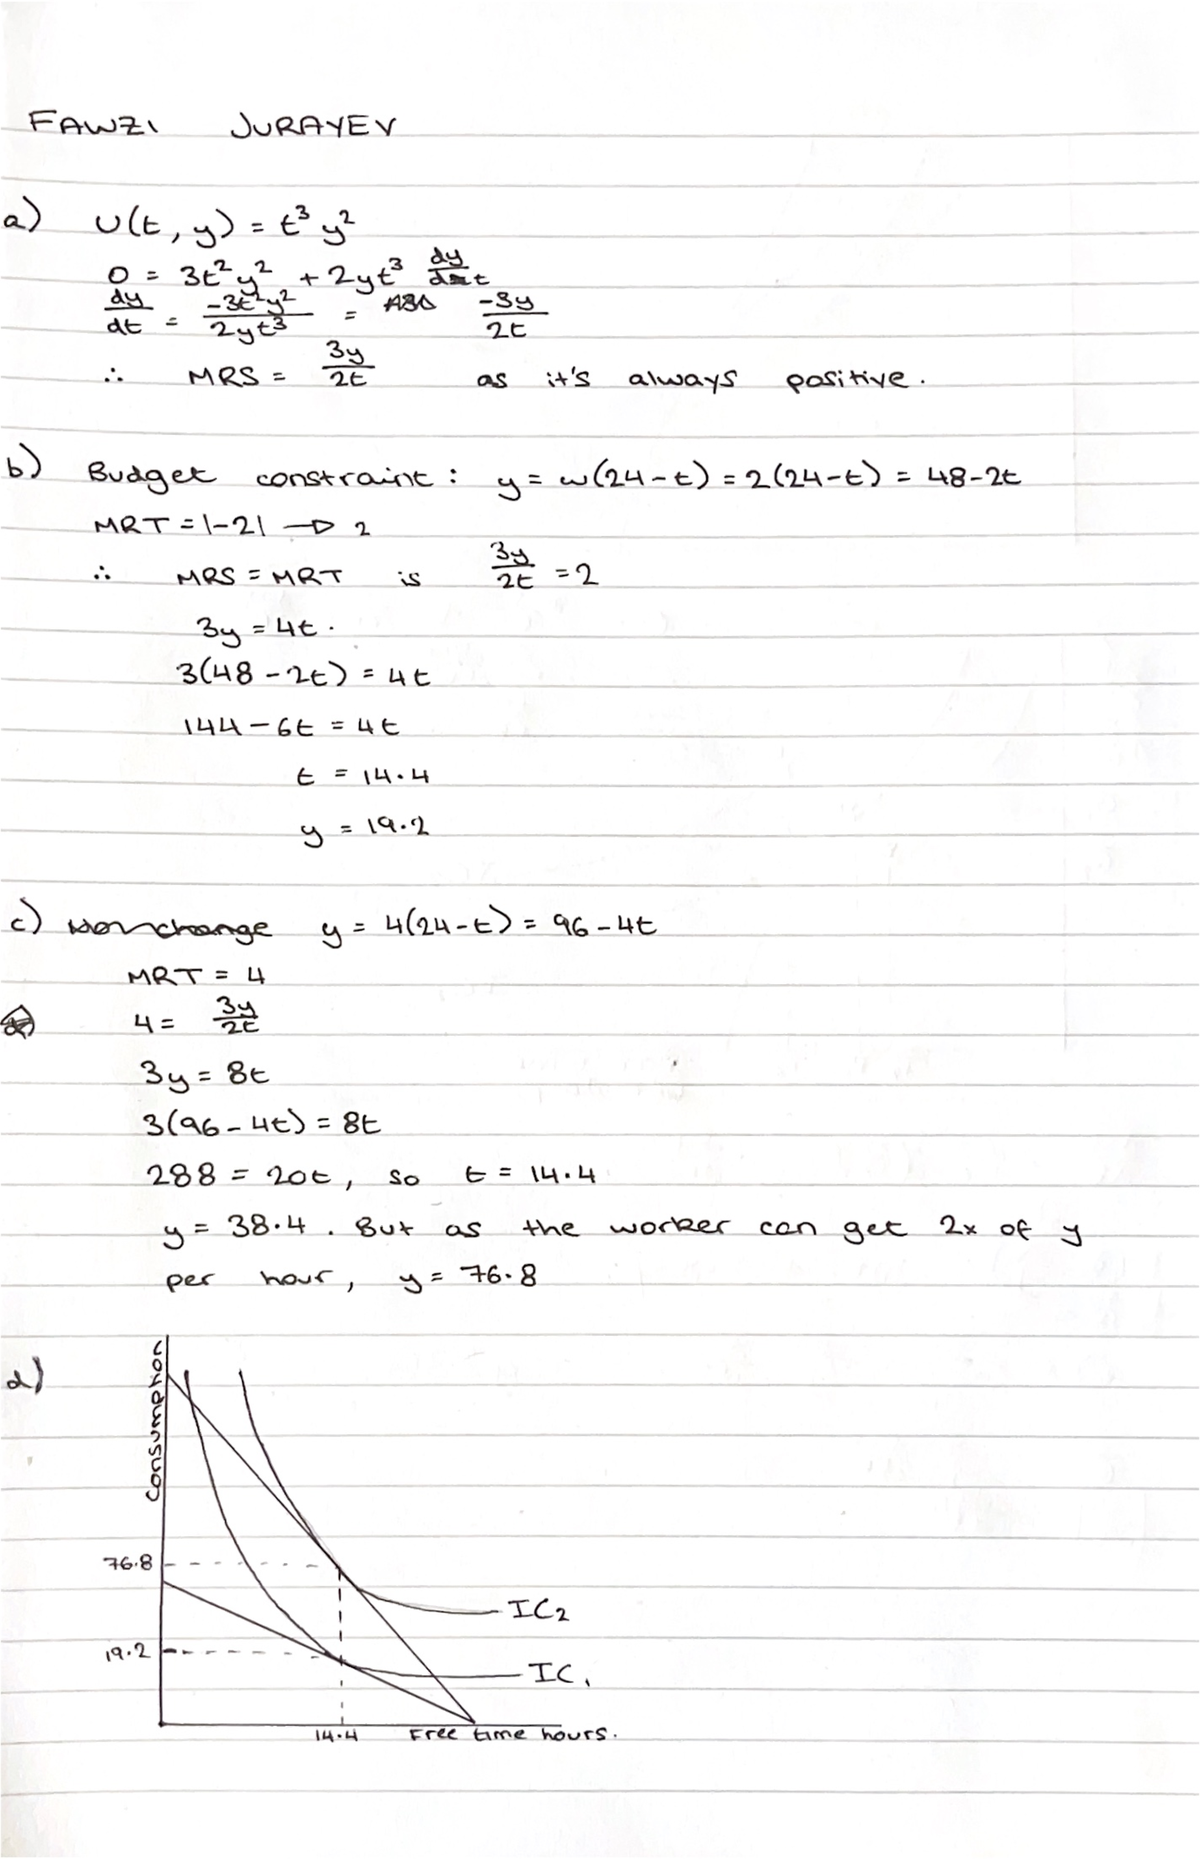 FAWZI JURAYEV
a) U(t, y) = t³ y²
0 = 3t²y² + 2yt³ dy/dt
dy/dt = -3t²y²/2yt³ = -3y/2t
∴ MRS = 3y/2t as it's always positive.
b) Budget constraint: y = w(24-t) = 2(24-t) = 48-2t
MRT = |-2| → 2
∴ MRS = MRT is 3y/2t = 2
3y = 4t.
3(48 - 2t) = 4t
144 - 6t = 4t
t = 14.4
y = 19.2
c) change y = 4(24-t) = 96 - 4t
MRT = 4
4 = 3y/2t
3y = 8t
3(96 - 4t) = 8t
288 = 20t, so t = 14.4
y = 38.4. But as the worker can get 2x of y
per hour, y = 76.8
d)
Consumption
76.8
IC₂
19.2
IC₁
14.4 Free time hours.